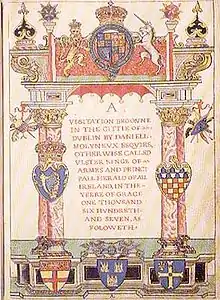 A
VISITATION BEGONNE
IN THE CITTIE OF
DVBLIN BY DANIELL
MOLYNEVX ESQVIRE,
OTHERWISE CALLED
VLSTER KINGE OF
ARMES AND PRINCI
PALL HERALD OF ALL
IRELAND IN THE
YERE OF GRACE
ONE THOVSAND
SIX HVNDRETH
AND SEVEN, AS
FOLOWETH